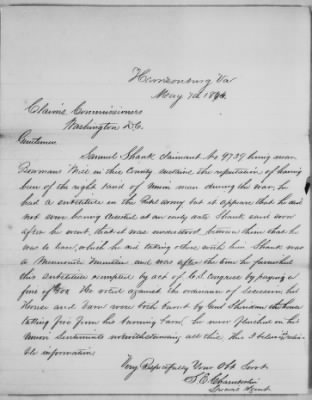 Harrisonburg Va
May 7th 1874
Claims Commissioners
Washington D.C.
Gentlemen
Samuel Shank claimant No 9739 living near
Bowmans Mill in this County sustains the reputation of having
been of the right kind of Union man during the war, he
had a substitute in the Reb army but it appears that he did
not own having credited at an early date Shank said soon
after he went, that it was understood between them that he
was to leave, which he did taking others with him Shank was
a Mennonite Minister and was after the time he furnished
this substitute exempted by act of C.S. Congress by paying a
fine of He voted against the ordinance of Secession his
House and Barn were both burnt by Genl Sheridan the house
taking fire from his burning barn, he never flinched in his
Union Sentiments notwithstanding all this this I obtained
ble information
Very Respectfully Your Obt Servt
Special Agent